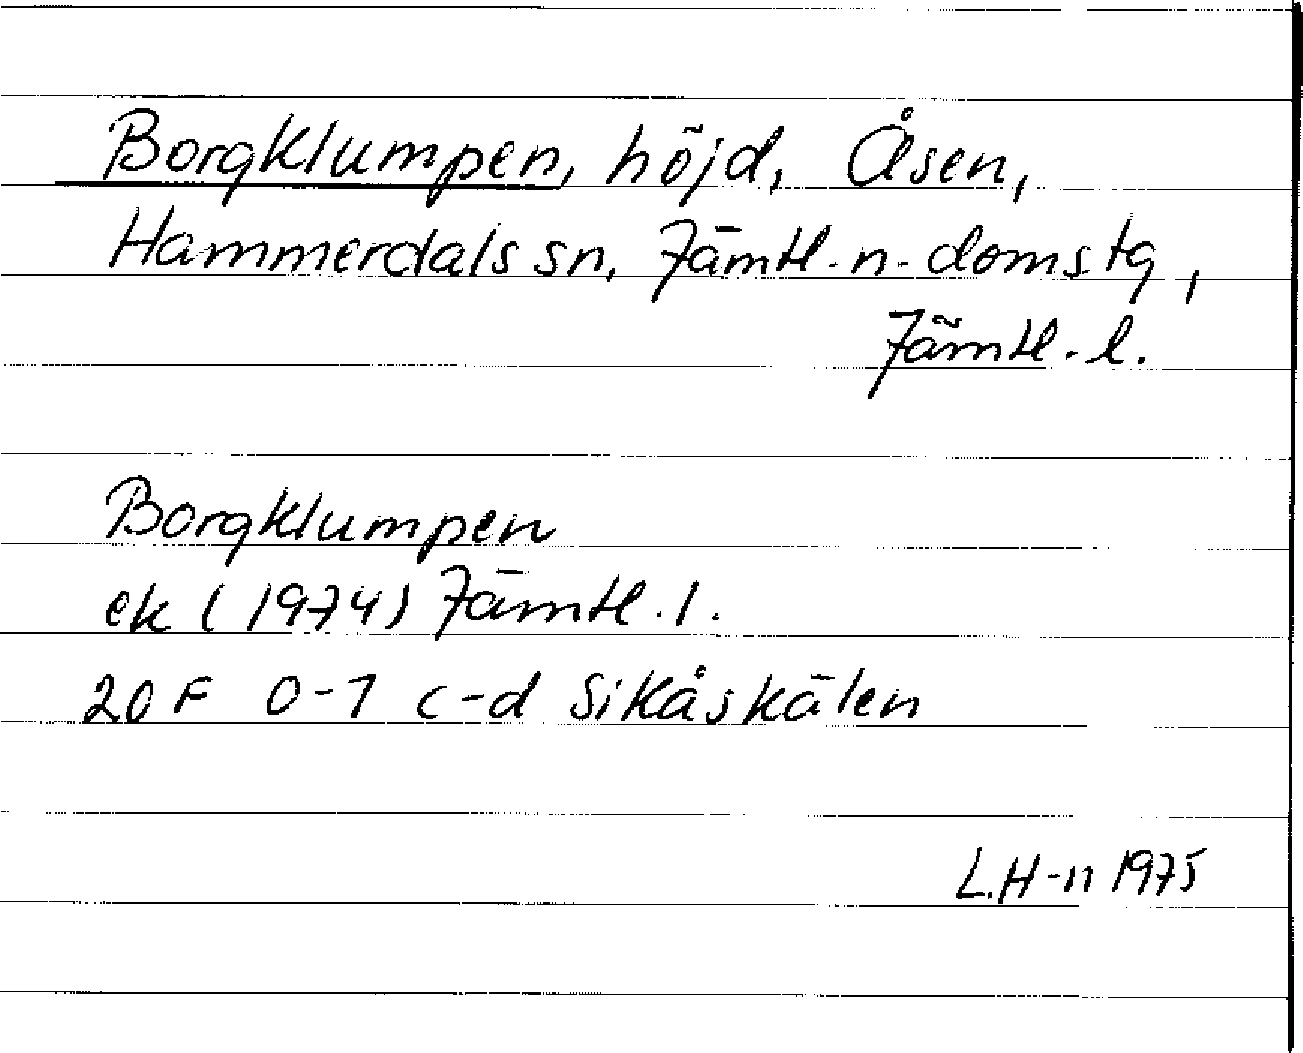 Borgklumpen, höjd, Åsen,
Hammerdals sn, Jämtl. n. domstg,
Jämtl. l.
Borgklumpen
ek (1974) Jämtl. l.
20 F 0-1 c-d Sikåskälen
L.H-n 1975